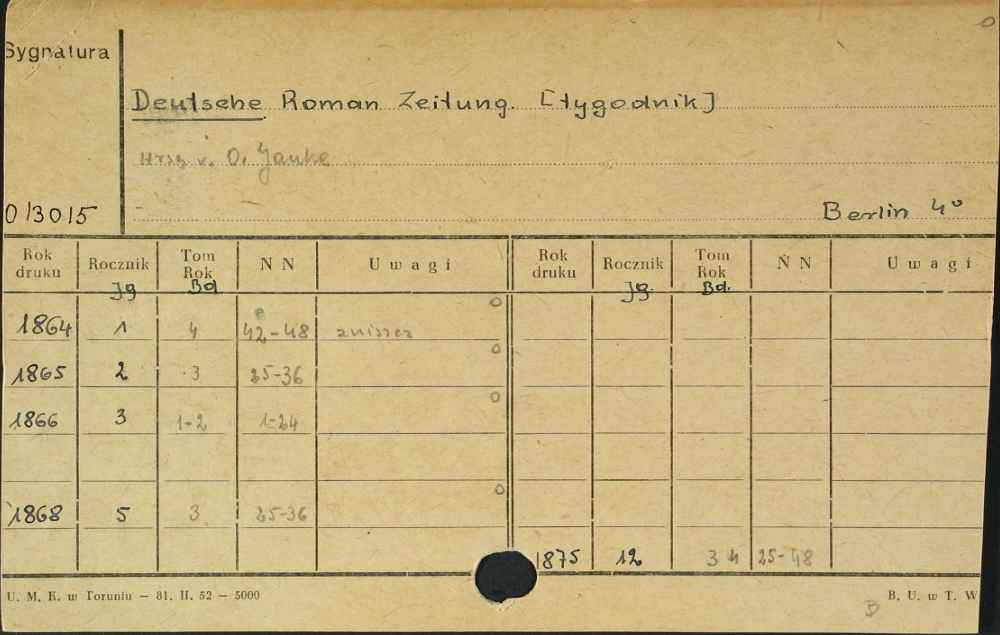 Sygnatura
Deutsche Roman Zeitung. [tygodnik]
Hrsg v. O. Janke
013015
Berlin 4°
Rok druku Rocznik Tom Rok N N Uwagi Rok druku Rocznik Tom Rok N N Uwagi
Jg Bd Jg. Bd.
1864 1 4 42-48
1865 2 3 25-36
1866 3 1-2 1-24
1868 5 3 25-36
1875 12 3 4 25-48
U. M. K. w Toruniu — 81. II. 52 — 5000
B. U. w T. W